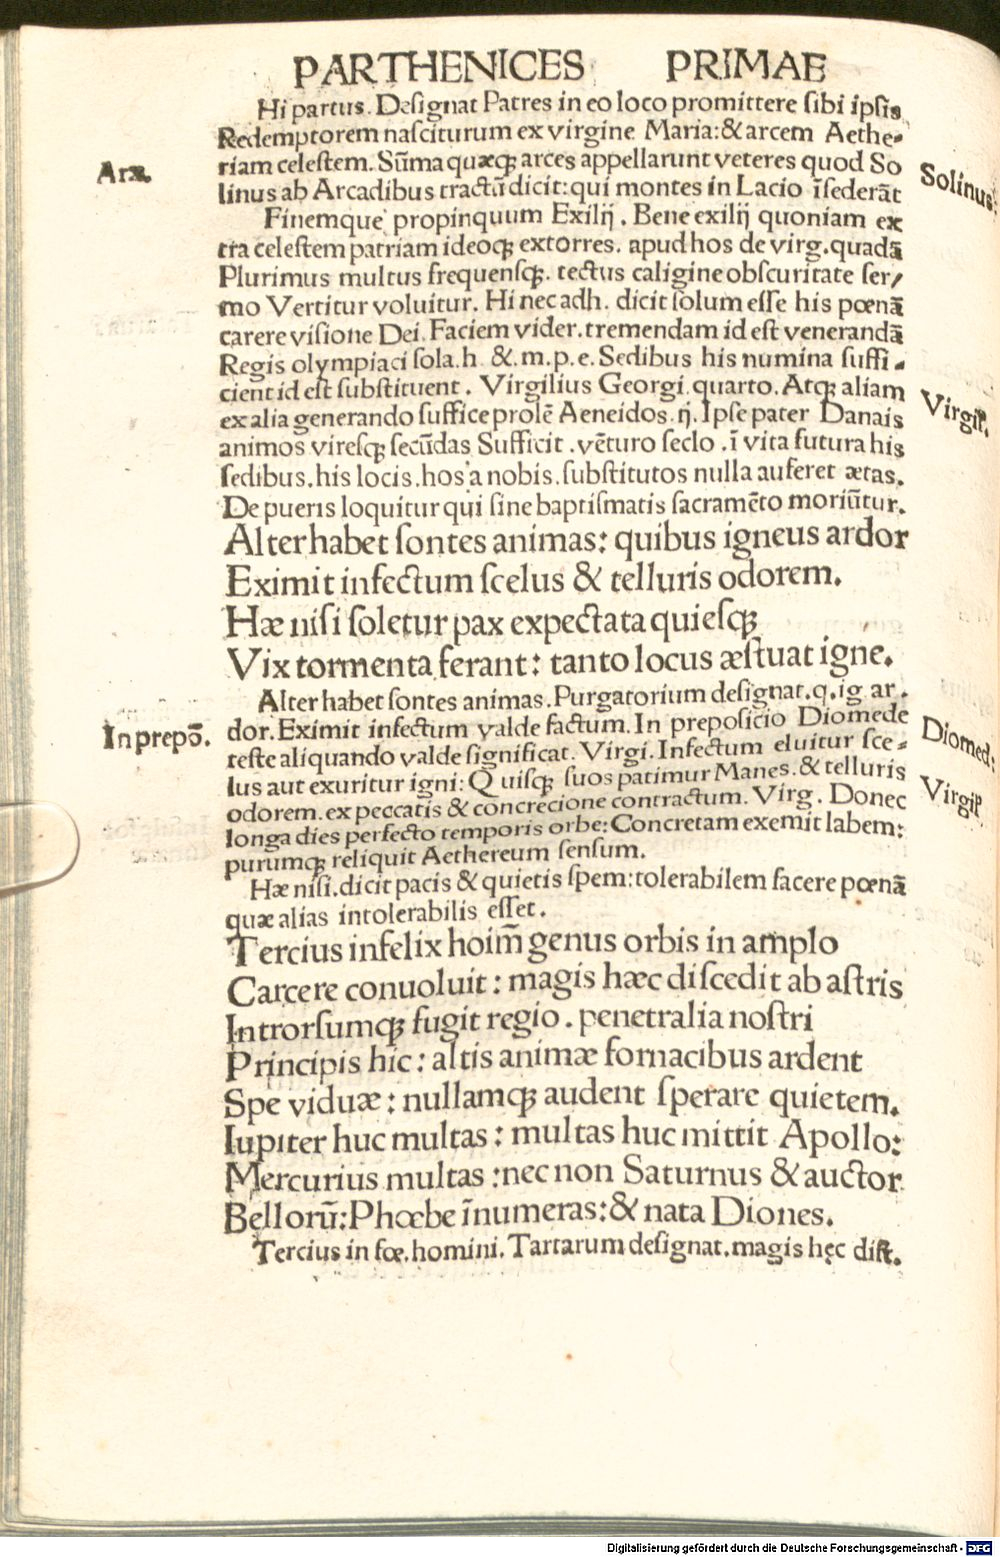 PARTHENICES PRIMAE
Hi partus. Deſignat Patres in eo loco promittere ſibi ipſis
Redemptorem naſciturum ex virgine Maria:& arcem Aethe-
Arx.
riam celeſtem. Sūma quæqꝫ arces appellarunt veteres quod So
Solinus:
linus ab Arcadibus tractū dicit:qui montes in Lacio īſederāt
Finemque propinquum Exilij. Bene exilij quoniam ex
tra celeſtem patriam ideoqꝫ extorres. apud hos de virg. quadā
Plurimus multus frequenſqꝫ. tectus caligine obſcuritate ſer/
mo Vertitur voluitur. Hi nec adh. dicit ſolum eſſe his pœnā
carere viſione Dei. Faciem vider. tremendam id eſt venerandā
Regis olympiaci ſola.h. &.m.p.e. Sedibus his numina ſuffi-
cient id eſt ſubſtituent. Virgilius Georgi.quarto. Atqꝫ aliam
Virgiꝉ.
ex alia generando ſuffice prolē Aeneidos.ij. Ipſe pater Danais
animos vireſqꝫ ſecūdas Sufficit.vēturo ſeclo.ī vita futura his
ſedibus.his locis.hos a nobis.ſubſtitutos nulla auferet ætas.
De pueris loquitur qui ſine baptiſmatis ſacramēto moriūtur.
Alter habet ſontes animas: quibus igneus ardor
Eximit infectum ſcelus & telluris odorem.
Hæ niſi ſoletur pax expectata quieſqꝫ
Vix tormenta ferant: tanto locus æſtuat igne.
Alter habet ſontes animas. Purgatorium deſignat.q.ig ar.
In prepō.
dor. Eximit infectum valde factum. In prepoſicio Diomede
Diomed:
teſte aliquando valde ſignificat. Virgi. Infectum eluitur ſce-
lus aut exuritur igni: Quiſqꝫ ſuos patimur Manes. & telluris
Virgiꝉ
odorem. ex peccatis & concrecione contractum. Virg. Donec
longa dies perfecto temporis orbe: Concretam exemit labem:
purumqꝫ reliquit Aethereum ſenſum.
Hæ niſi.dicit pacis & quietis ſpem:tolerabilem facere pœnā
quæ alias intolerabilis eſſet.
Tercius infelix hoim̄ genus orbis in amplo
Carcere conuoluit: magis hæc diſcedit ab aſtris
Introrſumqꝫ fugit regio. penetralia noſtri
Principis hic: altis animæ fornacibus ardent
Spe viduæ: nullamqꝫ audent ſperare quietem.
Iupiter huc multas: multas huc mittit Apollo:
Mercurius multas :nec non Saturnus & auctor
Bellorū: Phœbe īnumeras: & nata Diones.
Tercius in fœ.homini. Tartarum deſignat.magis hęc diſt.
Digitalisierung gefördert durch die Deutsche Forschungsgemeinschaft - DFG